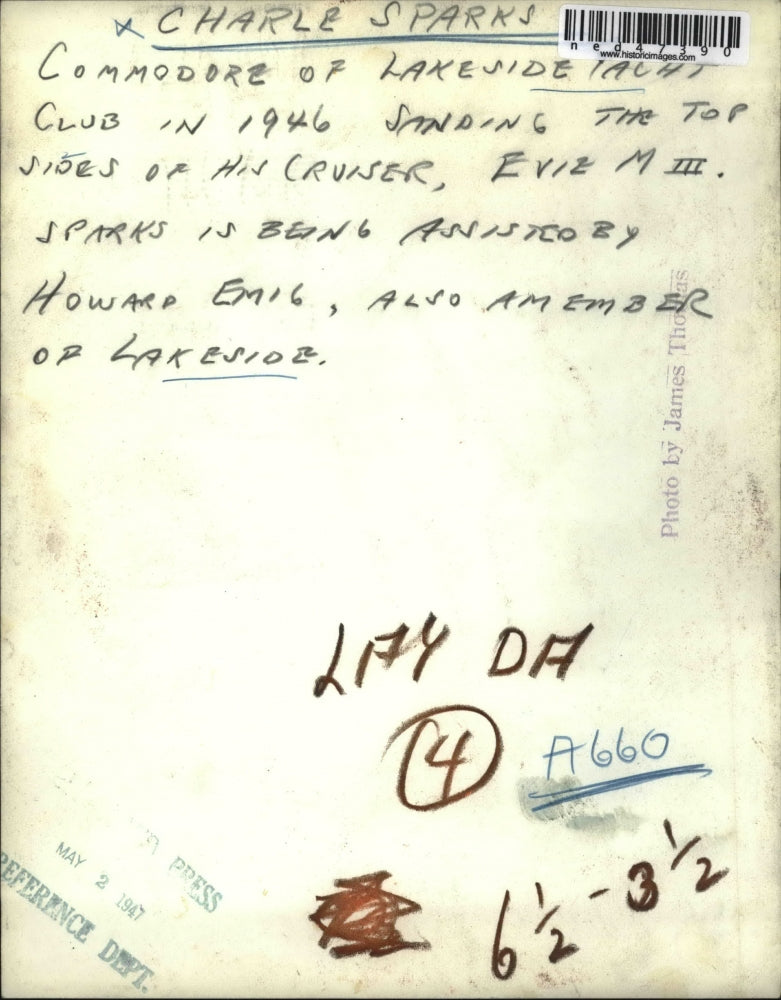 x CHARLE SPARKS
ned47390
www.historicimages.com
COMMODORE OF LAKESIDE YACHT
CLUB IN 1946 SANDING THE TOP
SIDES OF HIS CRUISER, EVIE M III.
SPARKS IS BEING ASSISTED BY
HOWARD EMIG, ALSO A MEMBER
OF LAKESIDE.
Photo by James Thomas
DA
4
A660
6 1/2 - 3 1/2
PRESS
MAY 2 1947
REFERENCE DEPT.